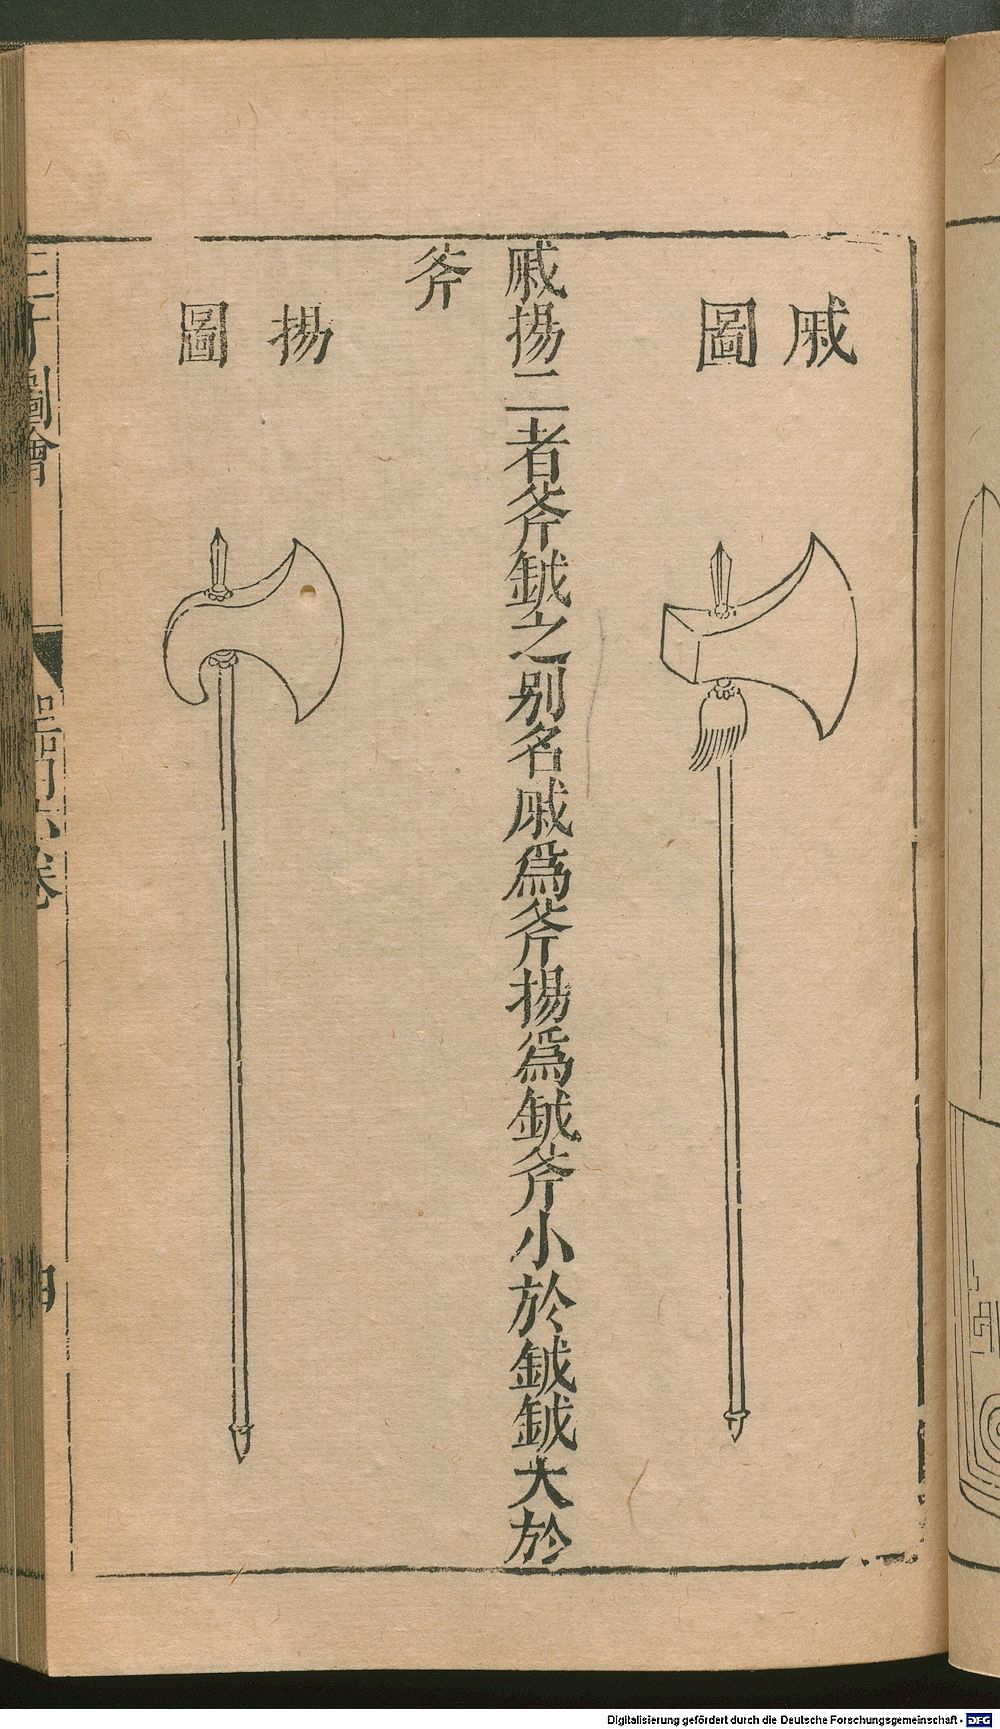 戚圖
戚揚二者斧鉞之别名戚爲斧揚爲鉞斧小於鉞鉞大於
斧
揚圖
圖會
卷
Digitalisierung gefördert durch die Deutsche Forschungsgemeinschaft - DFG